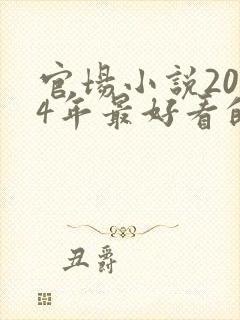 官場小説20
4年最好看的
丑爵